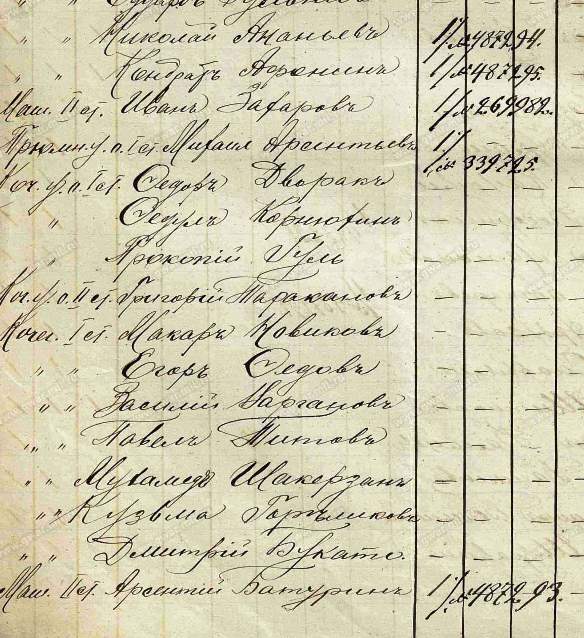 " " Николай Ананьевъ 1/№ 487294.
" " Кондратъ Афонинъ 1/№ 487295.
Маш. II ст. Иванъ Захаровъ 1/№ 269982.
п. I ст. Михаил Арсентьевъ 1/№ 339725.
Коч. у. п. I ст. Ѳедоръ Дворакъ — — — —
" Корнюхинъ — — — —
Прокопій Гуль — — — —
Коч. у. п. II ст. Григорій Таракановъ — — — —
Кочег. I ст. Макаръ Новиковъ — — — —
" " Егоръ Сѣдовъ — — — —
" " Василій Наргановъ — — — —
" " Павелъ Титовъ — — — —
" " Мухамедъ Шакерзанъ — — — —
" " Кузьма — — — —
" " Дмитрій Букато. — — — —
Маш. II ст. Арсентій Батуринъ 1/№ 487293.